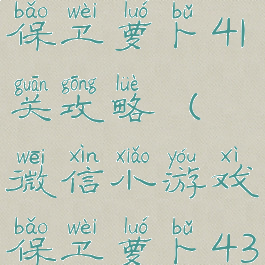 bǎo wèi luó bǔ
保卫萝卜41
guān gōng lüè
关攻略（
wēi xìn xiǎo yóu xì
微信小游戏
bǎo wèi luó bǔ
保卫萝卜43